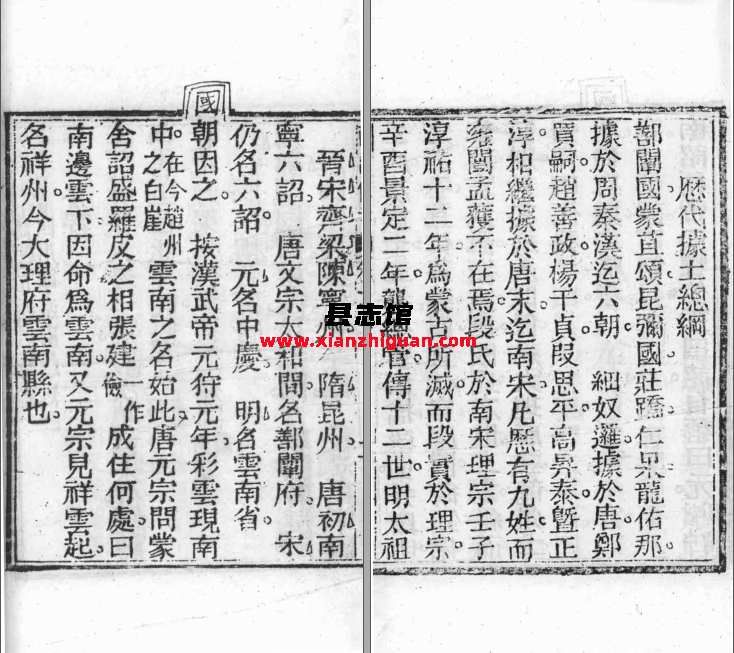 歷代據土總綱
鄯闡國蒙直頌昆彌國莊蹻仁果龍佑那
據於周秦漢迄六朝 細奴邏據於唐鄭
買嗣趙善政楊干貞段思平高昇泰曁正
淳相繼據於唐末迄南宋凡歷有九姓而
雍闓孟獲不在焉段氏於南宋理宗壬子
淳祐十二年爲蒙古所滅而段實於理宗
辛酉景定二年襲總管傳十二世明太祖
晉宋齊梁陳寧州 隋昆州 唐初南
寧六詔 唐文宗太和間名鄯闡府 宋
仍名六詔 元名中慶 明名雲南省
國朝因之 按漢武帝元狩元年彩雲現南
中在今趙州之白崖 雲南之名始此唐元宗問蒙
舍詔盛羅皮之相張建一作儉成住何處曰
南邊雲下因命爲雲南又元宗見祥雲起
名祥州今大理府雲南縣也
國
县志馆
www.xianzhiguan.com